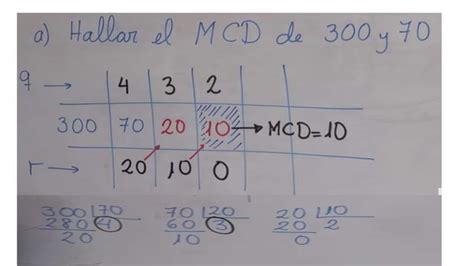 a) Hallar el MCD de 300 y 70
q → 4 3 2
300 70 20 10 → MCD=10
r → 20 10 0
300 70 70 20 20 10
280 4 60 3 20 2
20 10 0